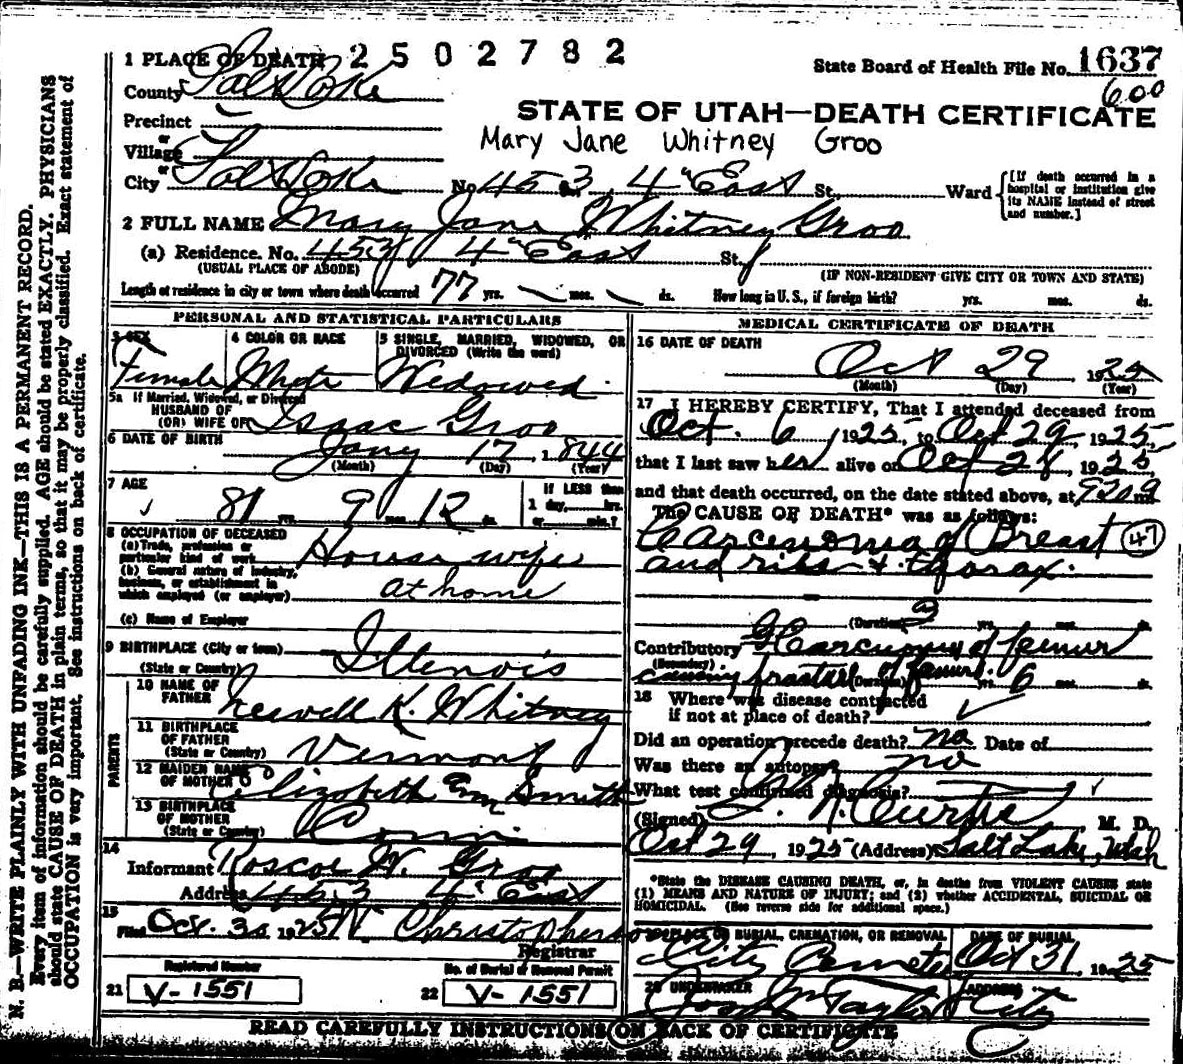 1 PLACE OF DEATH 2502782
State Board of Health File No. 1637
600
County Salt Lake
STATE OF UTAH—DEATH CERTIFICATE
Precinct
Mary Jane Whitney Groo
or
Village
or
City Salt Lake No. 453 4" East St. Ward
[If death occurred in a hospital or institution give its NAME instead of street and number.]
2 FULL NAME Mary Jane Whitney Groo
(a) Residence. No. 453 4" East St.
(USUAL PLACE OF ABODE) (IF NON-RESIDENT GIVE CITY OR TOWN AND STATE)
Length of residence in city or town where death occurred 77 yrs. mos. ds. How long in U. S., if foreign birth? yrs. mos. ds.
PERSONAL AND STATISTICAL PARTICULARS
3 SEX 4 COLOR OR RACE 5 SINGLE, MARRIED, WIDOWED, OR DIVORCED (Write the word)
Female White Widowed
5a If Married, Widowed, or Divorced
HUSBAND OF
(OR) WIFE OF Isaac Groo
6 DATE OF BIRTH Jany 17, 1844
(Month) (Day) (Year)
7 AGE 81 yrs. 9 mos. 12 ds.
If LESS than 1 day, hrs. or min.?
8 OCCUPATION OF DECEASED
(a) Trade, profession or particular kind of work House wife
(b) General nature of industry, business, or establishment in which employed (or employer) at home
(c) Name of Employer
9 BIRTHPLACE (City or town)
(State or Country) Illenois
PARENTS
10 NAME OF FATHER Newell K. Whitney
11 BIRTHPLACE OF FATHER (State or Country) Vermont
12 MAIDEN NAME OF MOTHER Elizabeth Ann Smith
13 BIRTHPLACE OF MOTHER (State or Country) Conn
14
Informant Roscoe W. Groo
Address 453 4" East
15
Filed Oct. 30 1925 Christopherson
Registrar
Registered Number No. of Burial or Removal Permit
21 V-1551 22 V-1551
MEDICAL CERTIFICATE OF DEATH
16 DATE OF DEATH
Oct 29 1925
(Month) (Day) (Year)
17 I HEREBY CERTIFY, That I attended deceased from
Oct. 6, 1925, to Oct 29 1925
that I last saw her alive on Oct 28, 1925,
and that death occurred, on the date stated above, at
The CAUSE OF DEATH* was as follows:
Carcenoma of Breast 47
and ribs + thorax.
(Duration) yrs. mos. ds.
Contributory Carcinoma of femur
(Secondary) causing fracture of femur. (Duration) yrs. 6 mos. ds.
18 Where was disease contracted
if not at place of death?
Did an operation precede death? no Date of
Was there an autopsy? no
What test confirmed diagnosis?
(Signed) Curtis M. D.
Oct 29, 1925 (Address) Salt Lake, Utah
*State the DISEASE CAUSING DEATH, or, in deaths from VIOLENT CAUSES state
(1) MEANS AND NATURE OF INJURY; and (2) whether ACCIDENTAL, SUICIDAL OR
HOMICIDAL. (See reverse side for additional space.)
PLACE OF BURIAL, CREMATION, OR REMOVAL DATE OF BURIAL
City Cemetery Oct 31 1925
20 UNDERTAKER ADDRESS
Taylor City
READ CAREFULLY INSTRUCTIONS ON BACK OF CERTIFICATE
N. B.—WRITE PLAINLY WITH UNFADING INK—THIS IS A PERMANENT RECORD.
Every item of information should be carefully supplied. AGE should be stated EXACTLY. PHYSICIANS
should state CAUSE OF DEATH in plain terms, so that it may be properly classified. Exact statement of
OCCUPATION is very important. See instructions on back of certificate.